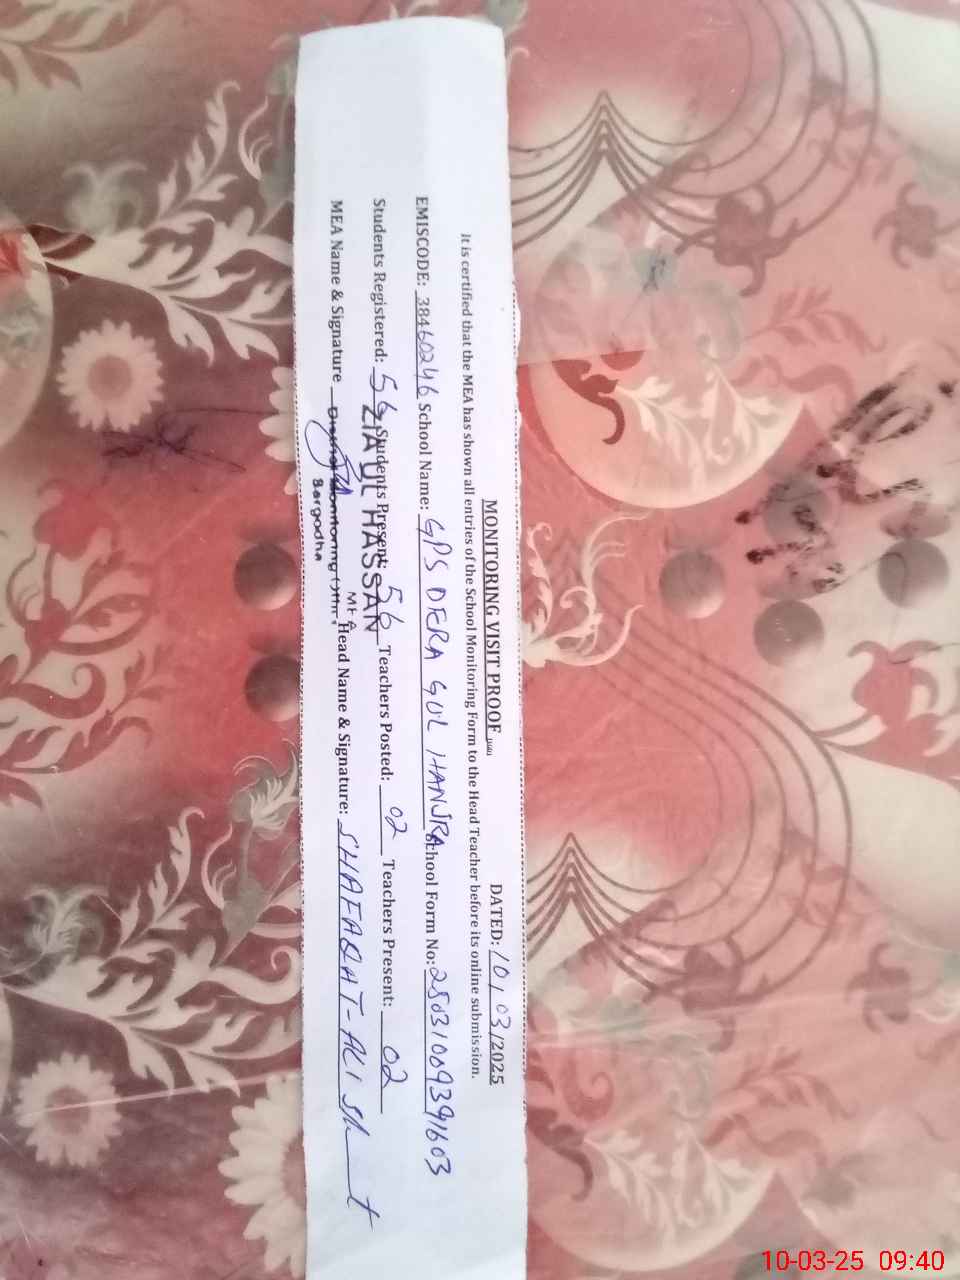 MONITORING VISIT PROOF DATED: 10/03/2025
It is certified that the MEA has shown all entries of the School Monitoring Form to the Head Teacher before its online submission.
EMISCODE: 38460246 School Name: GPS DERA GUL HANJRA School Form No: 25031009391603
Students Registered: 56 Students Present: 56 Teachers Posted: 02 Teachers Present: 02
ZIA UL HASSAN
MEA
MEA Name & Signature Head Name & Signature: SHAFAQAT-ALI
District Monitoring Officer
Sargodha
10-03-25 09:40